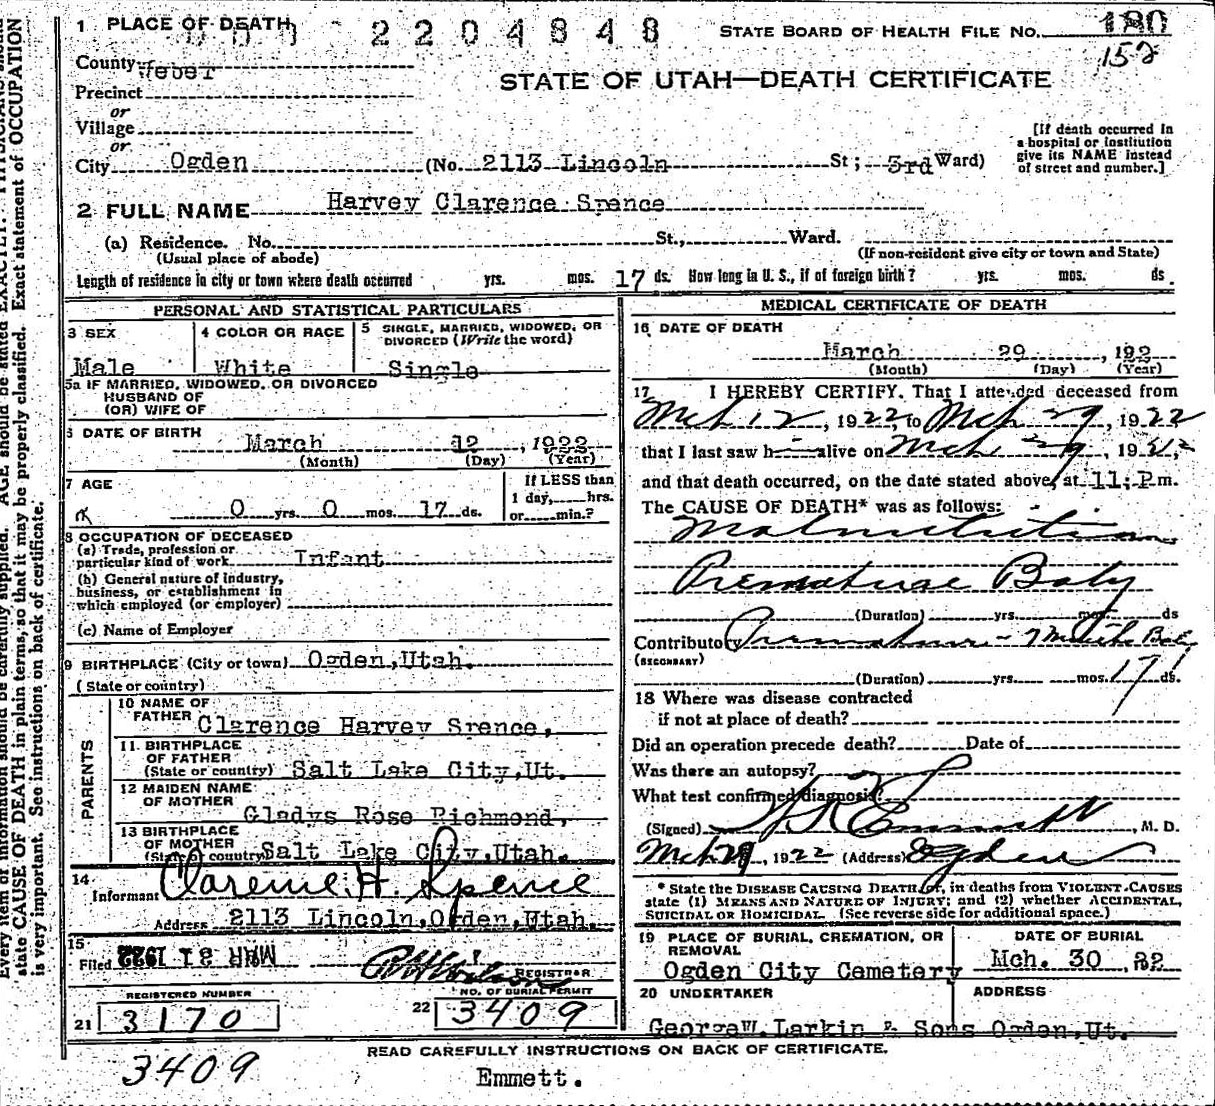 1 PLACE OF DEATH
2204848
STATE BOARD OF HEALTH FILE No. 180
152
County Weber
STATE OF UTAH—DEATH CERTIFICATE
Precinct
or
Village
or
City Ogden (No. 2113 Lincoln St; 3rd Ward)
[If death occurred in a hospital or institution give its NAME instead of street and number.]
2 FULL NAME Harvey Clarence Spence
(a) Residence. No. St., Ward.
(Usual place of abode) (If non-resident give city or town and State)
Length of residence in city or town where death occurred yrs. mos. 17 ds. How long in U. S., if of foreign birth? yrs. mos. ds.
PERSONAL AND STATISTICAL PARTICULARS
3 SEX
Male
4 COLOR OR RACE
White
5 SINGLE, MARRIED, WIDOWED, OR DIVORCED (Write the word)
Single
5a IF MARRIED, WIDOWED, OR DIVORCED
HUSBAND OF
(OR) WIFE OF
6 DATE OF BIRTH
March 12, 1922
(Month) (Day) (Year)
7 AGE
0 yrs. 0 mos. 17 ds.
If LESS than
1 day, hrs.
or min.?
8 OCCUPATION OF DECEASED
(a) Trade, profession or
particular kind of work Infant
(b) General nature of industry,
business, or establishment in
which employed (or employer)
(c) Name of Employer
9 BIRTHPLACE (City or town) Ogden, Utah.
(State or country)
PARENTS
10 NAME OF
FATHER Clarence Harvey Spence,
11 BIRTHPLACE
OF FATHER
(State or country) Salt Lake City, Ut.
12 MAIDEN NAME
OF MOTHER
Gladys Rose Richmond,
13 BIRTHPLACE
OF MOTHER
(State or country) Salt Lake City, Utah.
14
Informant Clarence H. Spence
Address 2113 Lincoln, Ogden, Utah.
15
Filed MAR 31 1922
REGISTRAR
REGISTERED NUMBER
21 3170
NO. OF BURIAL PERMIT
22 3409
MEDICAL CERTIFICATE OF DEATH
16 DATE OF DEATH
March 29, 192
(Month) (Day) (Year)
17 I HEREBY CERTIFY, That I attended deceased from
Mch 12, 1922, to Mch 29, 1922
that I last saw h alive on Mch 29, 19
and that death occurred, on the date stated above, at 11: P m.
The CAUSE OF DEATH* was as follows:
Malnutrition
Premature Baby
(Duration) yrs. mos. ds
Contributory Premature - 7 Months Baby
(SECONDARY)
(Duration) yrs. mos. 17 ds.
18 Where was disease contracted
if not at place of death?
Did an operation precede death? Date of
Was there an autopsy?
What test confirmed diagnosis?
(Signed) Emmett, M. D.
Mch 29, 1922 (Address) Ogden
* State the DISEASE CAUSING DEATH, or, in deaths from VIOLENT CAUSES
state (1) MEANS AND NATURE OF INJURY; and (2) whether ACCIDENTAL,
SUICIDAL OR HOMICIDAL. (See reverse side for additional space.)
19 PLACE OF BURIAL, CREMATION, OR
REMOVAL
Ogden City Cemetery
DATE OF BURIAL
Mch. 30, 22
20 UNDERTAKER ADDRESS
George W. Larkin & Sons Ogden, Ut.
READ CAREFULLY INSTRUCTIONS ON BACK OF CERTIFICATE.
3409
Emmett.
Every item of information should be carefully supplied. AGE should be stated EXACTLY. PHYSICIANS should
state CAUSE OF DEATH in plain terms, so that it may be properly classified. Exact statement of OCCUPATION
is very important. See instructions on back of certificate.